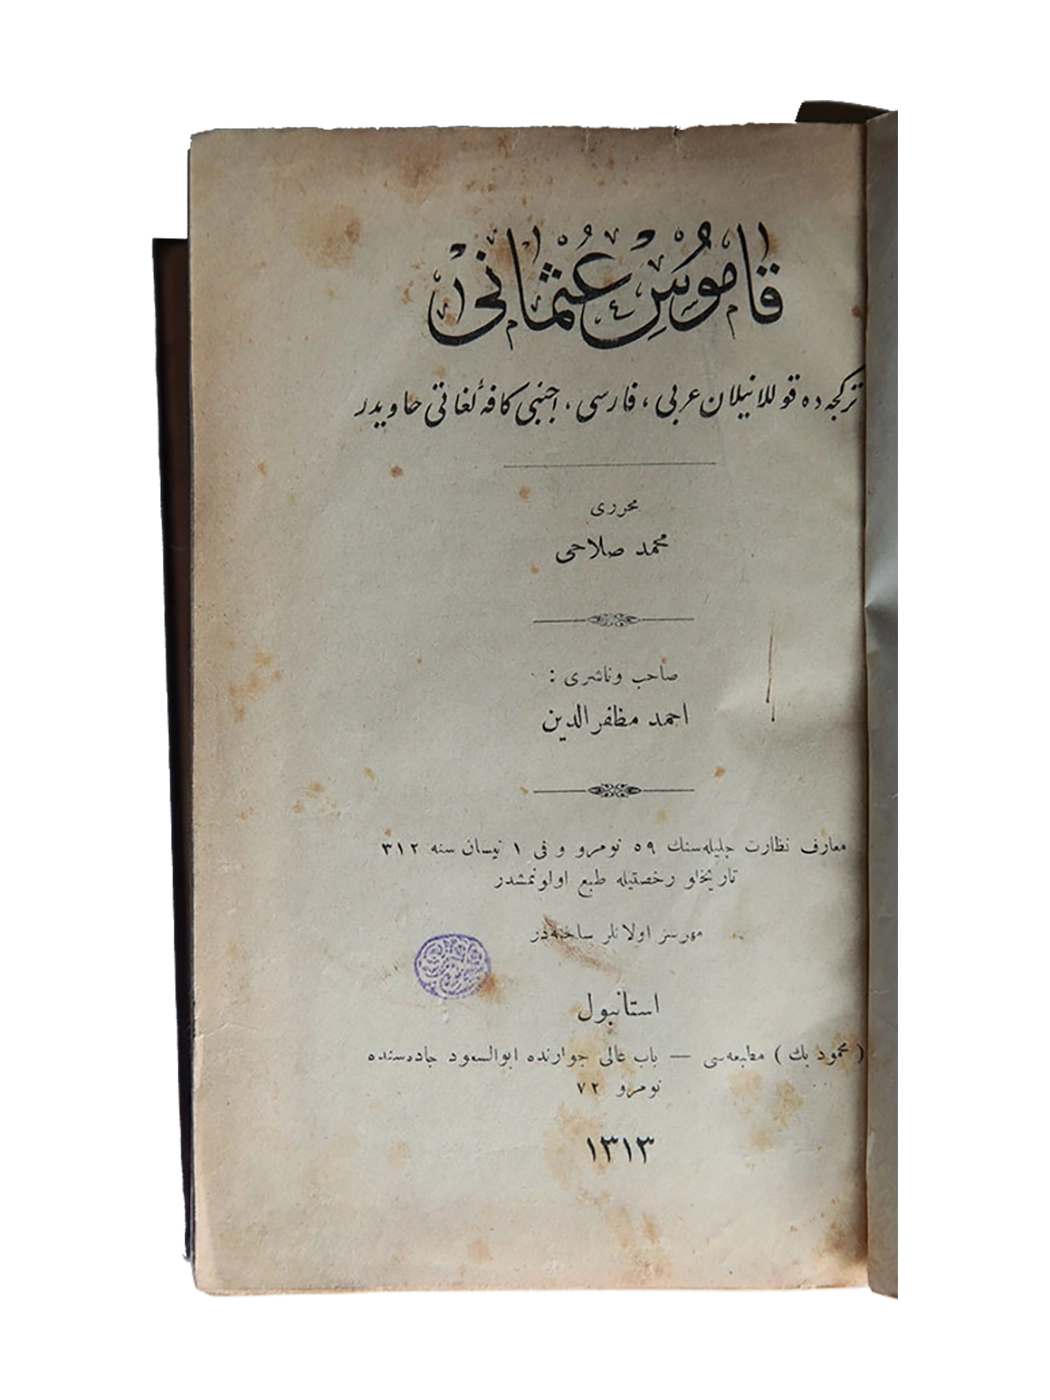 قاموس عثمانی
ترکجه‌ده قوللانیلان عربی ، فارسی ، اجنبی کافهٔ لغاتی حاویدر
محرری
محمد صلاحی
صاحب وناشری :
احمد مظفرالدین
معارف نظارت جلیله‌سنك ٥٩ نومرو و فی ١ نیسان سنه ٣١٢
تاریخلو رخصتیله طبع اولونمشدر
مهرسز اولانلر ساخته‌در
استانبول
( محمود بك ) مطبعه‌سی — باب عالی جوارنده ابوالسعود جاده‌سنده
نومرو ٧٢
١٣١٣